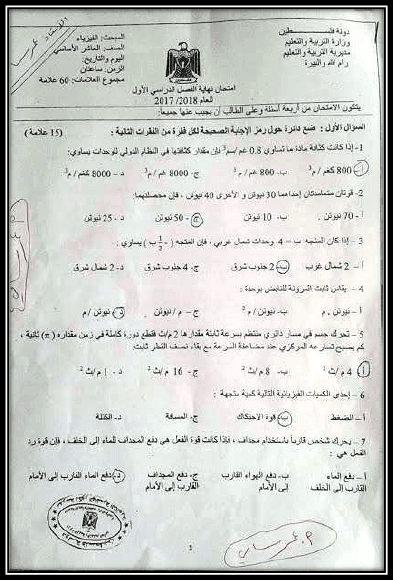 دولة فلسطين
وزارة التربية والتعليم
مديرية التربية والتعليم
رام الله والبيرة
المبحث: الفيزياء
الصف: العاشر الأساسي
اليوم والتاريخ:
الزمن: ساعتان
مجموع العلامات: 60 علامة
امتحان نهاية الفصل الدراسي الأول
للعام 2017 /2018
يتكون الامتحان من أربعة أسئلة وعلى الطالب أن يجيب عنها جميعاً.
السؤال الأول : ضع دائرة حول رمز الإجابة الصحيحة لكل فقرة من الفقرات التالية : (15 علامة)
1- إذا كانت كثافة مادة ما تساوي 0.8 غم /سم³ فإن مقدار كثافتها في النظام الدولي للوحدات يساوي:
أ- 800 كغم / م³ ب- 800 غم / م³ ج- 8000 غم / م³ د- 8000 كغم / م³
2- قوتان متماستان إحداهما 30 نيوتن و الأخرى 40 نيوتن ، فإن محصلتهما:
أ- 70 نيوتن . ب- 10 نيوتن ج- 50 نيوتن د- 25 نيوتن
3 - إذا كان المتجه ب = 4 وحدات شمال غربي ، فإن المتجه ( - ½ ب ) يساوي :
أ- 2 شمال غرب ب- 2 جنوب شرق ج- 4 جنوب شرق د- 2 شمال شرق
4 - يقاس ثابت المرونة للنابض بوحدة :
أ- نيوتن . م ب- نيوتن ج- م / نيوتن د- نيوتن / م
5 - تحرك جسم في مسار دائري منتظم بسرعة ثابتة مقدارها 2 م/ث فقطع دورة كاملة في زمن مقداره (π) ثانية ،
كم يصبح تسارعه المركزي عند مضاعفة السرعة مع بقاء نصف القطر ثابت:
أ- 4 م /ث² ب- 8 م /ث² ج- 16 م /ث² د- 1 م/ث²
6 – إحدى الكميات الفيزيائية التالية كمية متجهة :
أ – الضغط ب- قوة الاحتكاك ج- المسافة د- الكتلة
7 – يحرك شخص قارباً باستخدام مجداف ، فإذا كانت قوة الفعل هي دفع المجداف للماء إلى الخلف ، فإن قوة رد
الفعل هي :
أ – دفع الماء القارب إلى الخلف ب- دفع الهواء القارب إلى الأمام ج- دفع المجداف القارب إلى الأمام د- دفع الماء القارب إلى الأمام
1